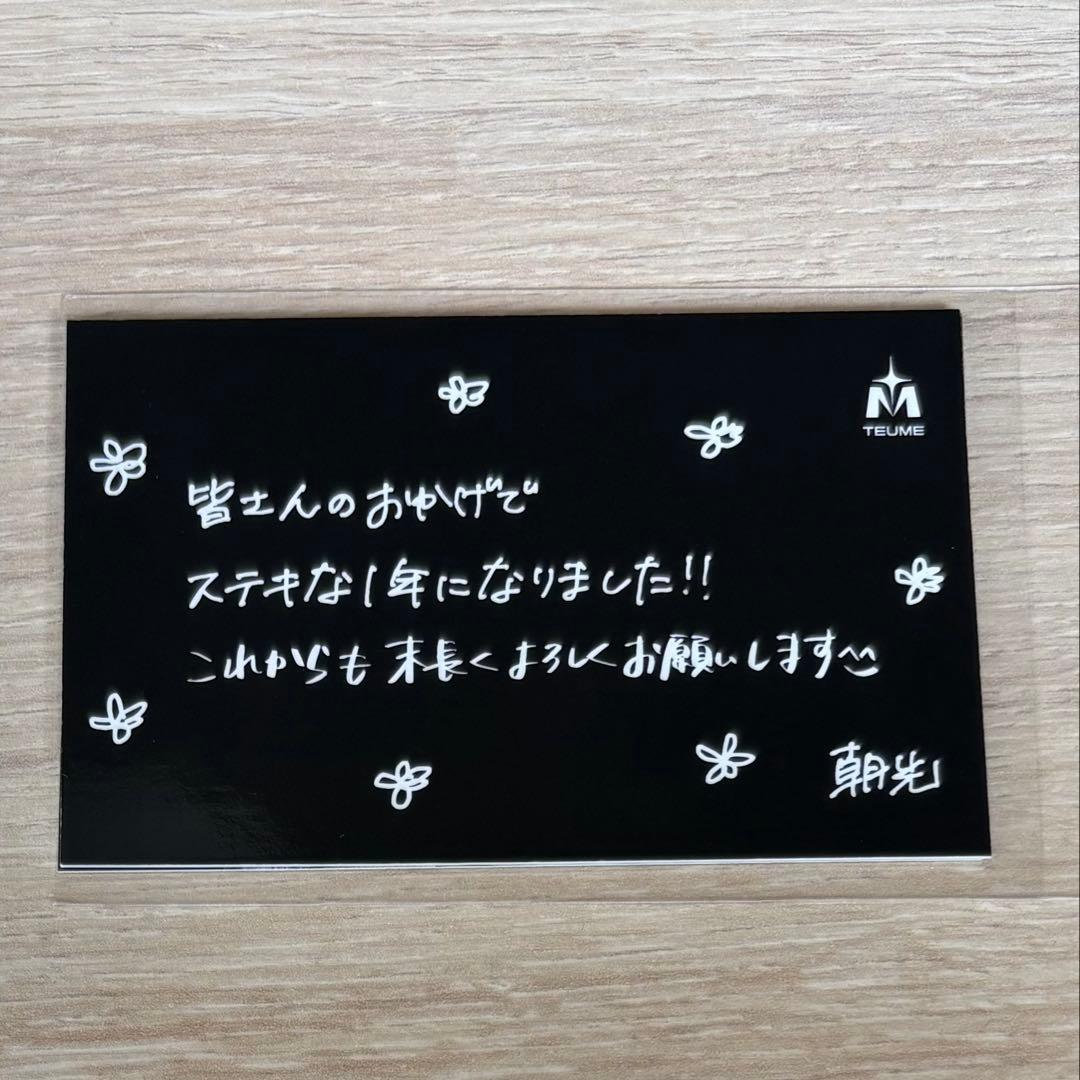 TEUME
皆さんのおかげで
ステキな1年になりました!!
これからも末長くよろしくお願いします^^
朝光